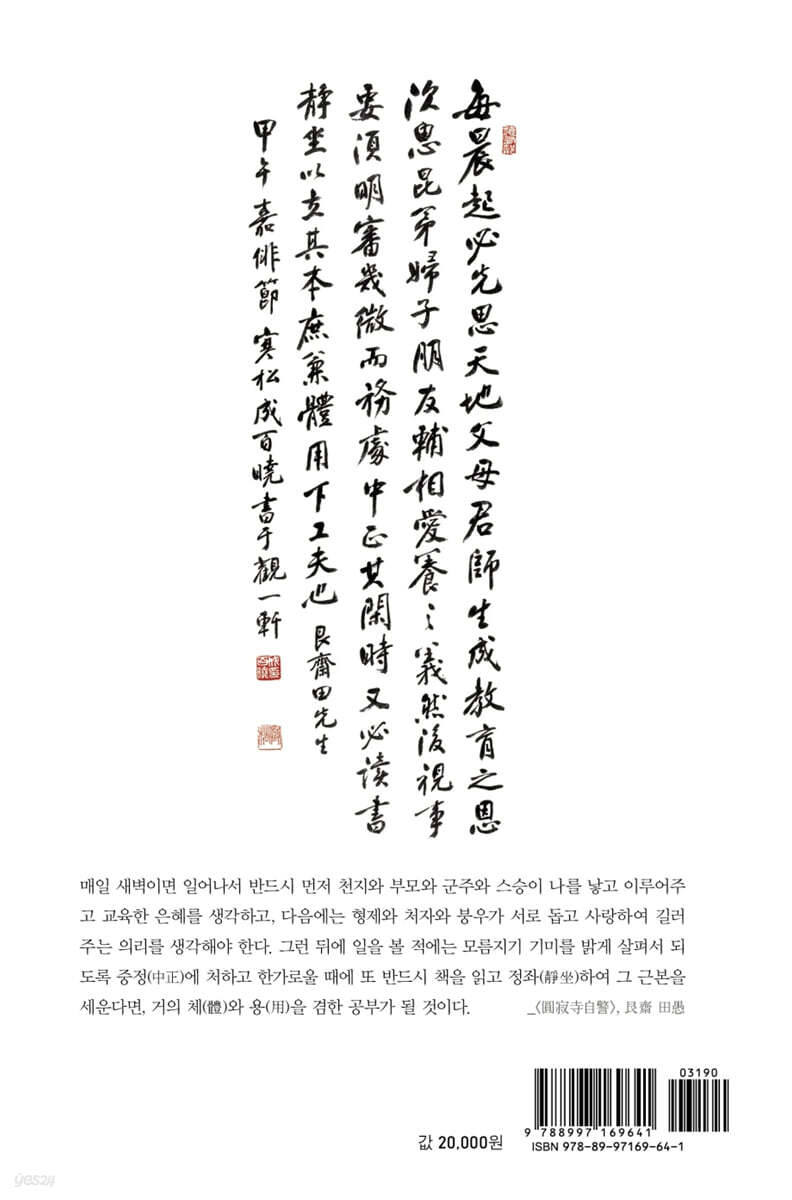 每晨起必先思天地父母君師生成教育之恩
次思昆弟婦子朋友輔相愛養之義然後視事
要須明審幾微而務處中正其閑時又必读書
靜坐以立其本庶兼體用下工夫也 艮齋田先生
甲午嘉俳節 寒松成百曉書于觀一軒
매일 새벽이면 일어나서 반드시 먼저 천지와 부모와 군주와 스승이 나를 낳고 이루어주
고 교육한 은혜를 생각하고, 다음에는 형제와 처자와 붕우가 서로 돕고 사랑하여 길러
주는 의리를 생각해야 한다. 그런 뒤에 일을 볼 적에는 모름지기 기미를 밝게 살펴서 되
도록 중정(中正)에 처하고 한가로울 때에 또 반드시 책을 읽고 정좌(靜坐)하여 그 근본을
세운다면, 거의 체(體)와 용(用)을 겸한 공부가 될 것이다. _〈圓寂寺自警〉, 艮齋 田愚
03190
9 788997 169641
값 20,000원
ISBN 978-89-97169-64-1
yes24